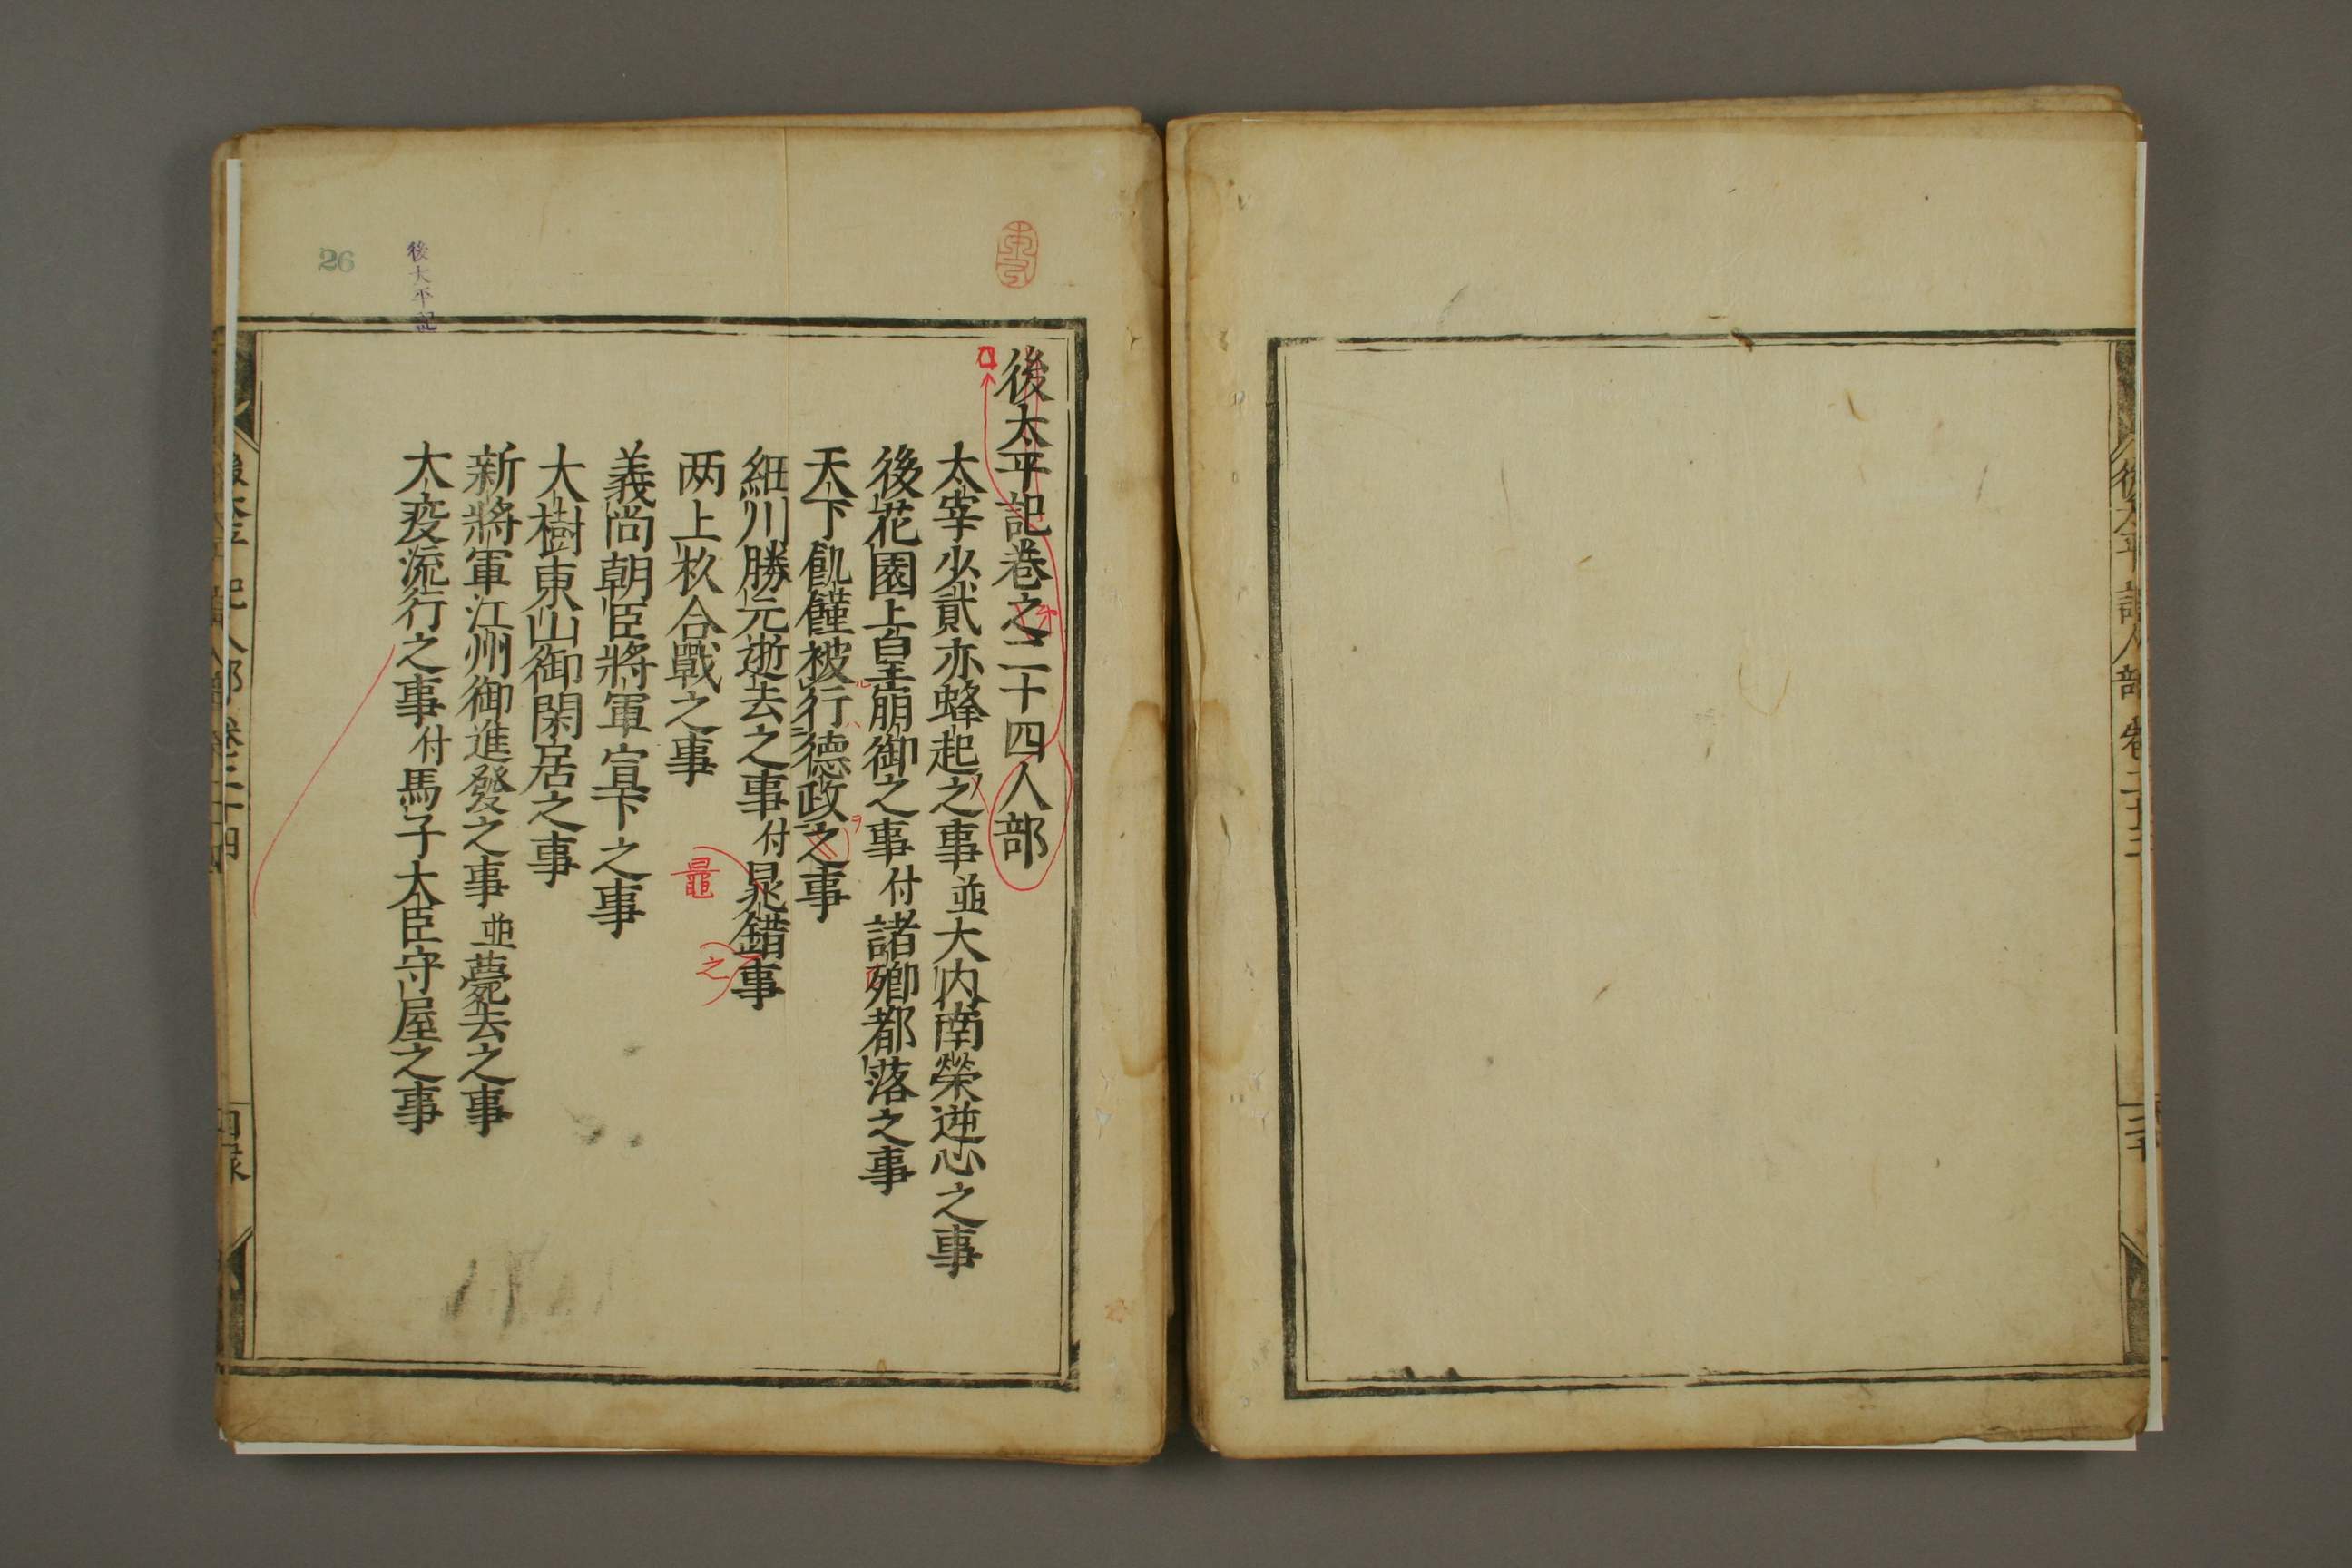 後太平記巻之二十四人部
太宰少貳亦蜂起之事並大内南榮逆心之事
後花園上皇崩御之事付諸卿都落之事
天下飢饉被行德政之事
細川勝元逝去之事付晁錯事
两上杦合戰之事
義尚朝臣將軍宣下之事
大樹東山御閑居之事
新將軍江州御進發之事並薨去之事
大疫流行之事付馬子大臣守屋之事
鼂
之
後太平記
26